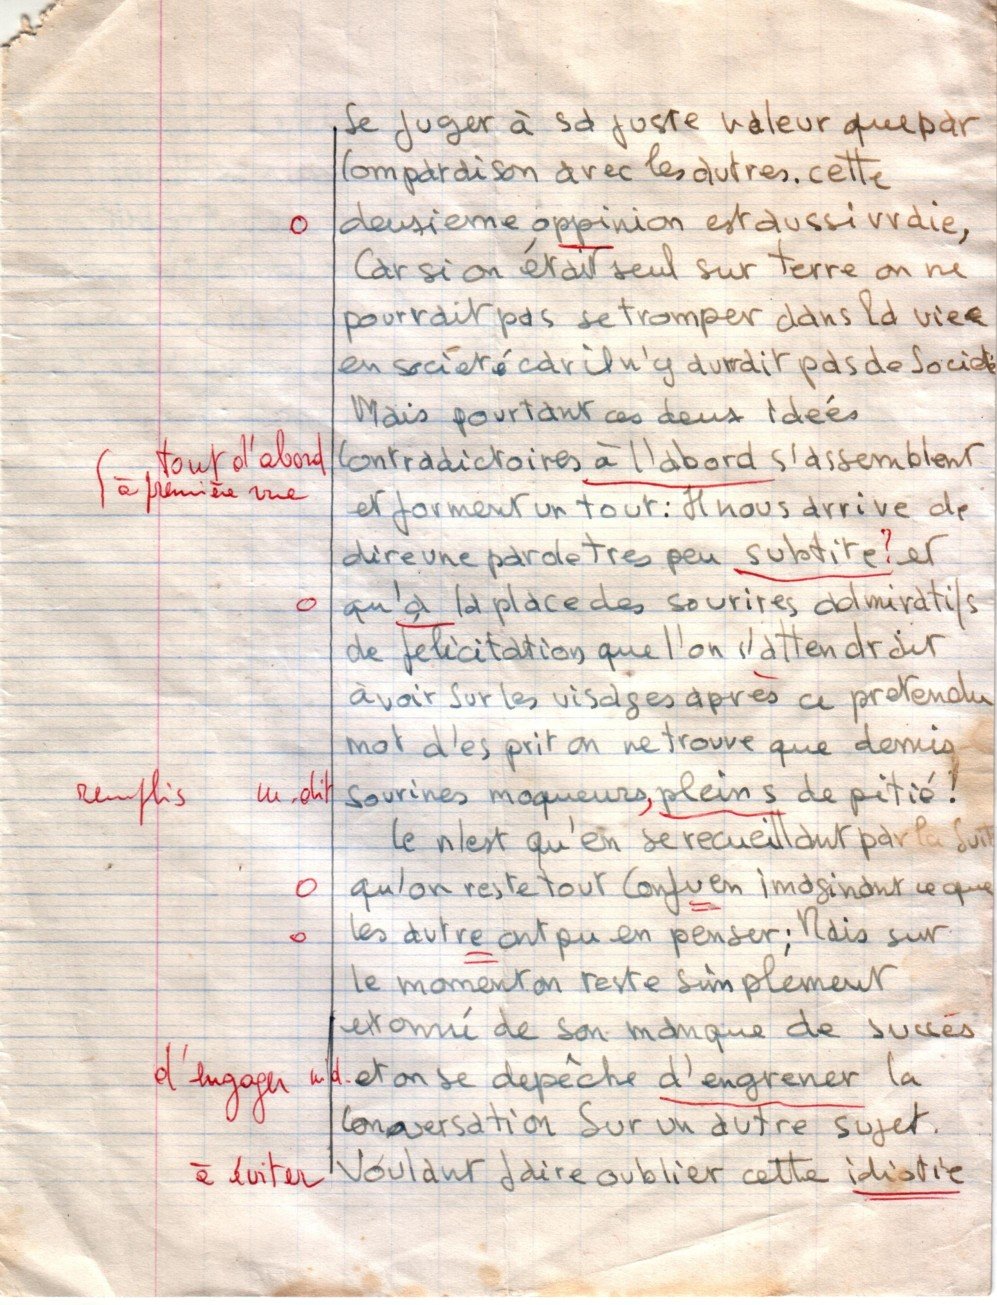 se juger à sa juste valeur que par
compardison avec les autres. cette
o deusieme oppinion est aussi vraie,
Car si on était seul sur terre on ne
pourrait pas se tromper dans la vie
en société car il n'y aurait pas de Société
Mais pourtant ces deux idées
tout d'abord contradictoires à l'abord s'assemblent
à première vue et forment un tout: Il nous arrive de
dire une parole tres peu subtire? et
o qu'à la place des sourires admiratifs
de felicitation que l'on s'attendrait
à voir sur les visages après ce pretendu
mot d'esprit on ne trouve que demis
remplis m. dit sourires moqueurs, pleins de pitié!
Ce n'est qu'en se recueillant par la suite
o qu'on reste tout confu en imaginant ce que
o les autre ont pu en penser; Mais sur
le moment on reste simplement
etonné de son manque de succès
d'engager m d. et on se depêche d'engrener la
conversation sur un autre sujet.
à éviter Voulant faire oublier cette idiotie